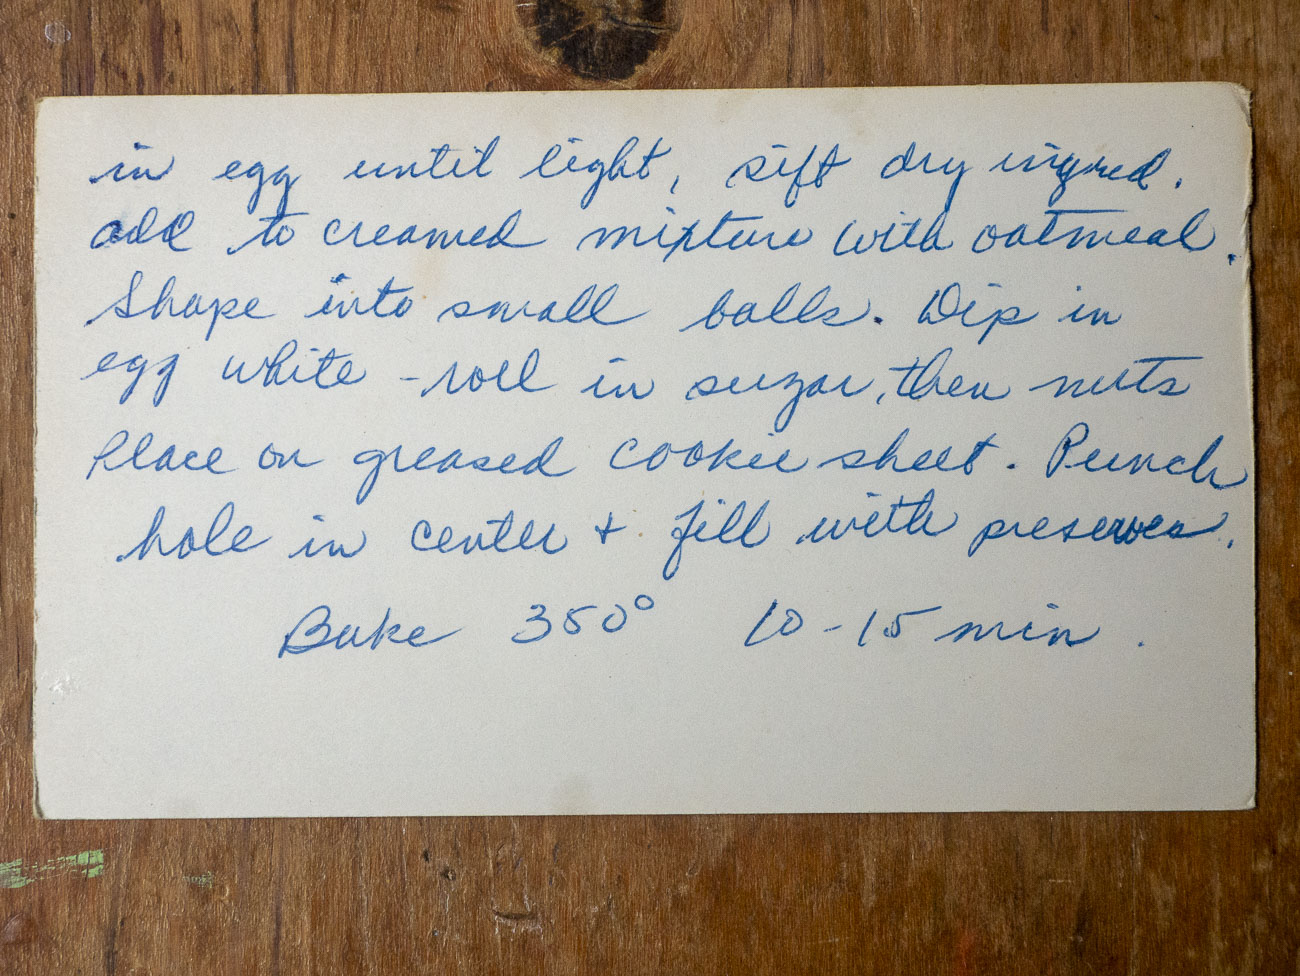 in egg until light, sift dry ingred.
add to creamed mixture with oatmeal.
Shape into small balls. Dip in
egg white - roll in sugar, then nuts
Place on greased cookie sheet. Punch
hole in center + fill with preserves.
Bake 350° 10-15 min.